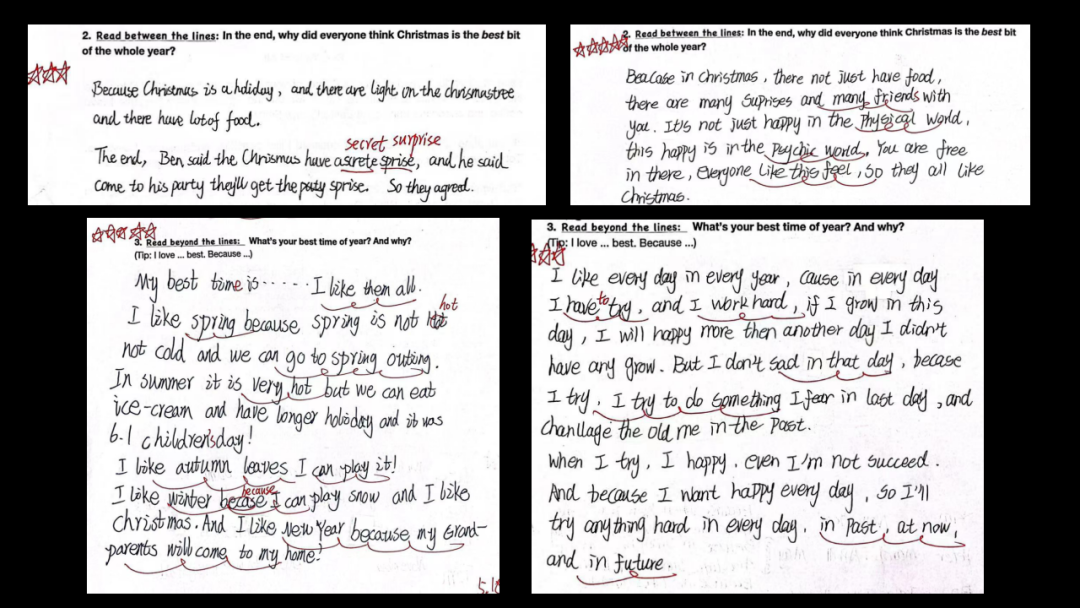 2. Read between the lines: In the end, why did everyone think Christmas is the best bit
of the whole year?
Because Christmas is a hdiday, and there are light on the chrismastree
and there have lotof food.
secret surprise
The end, Ben said the Chrismas have a screte sprise, and he said
come to his party they'll get the paty sprise. So they agreed.
2. Read between the lines: In the end, why did everyone think Christmas is the best bit
of the whole year?
Beacase in christmas, there not just have food,
there are many suprises and many friends with
you. It's not just happy in the Physical world,
this happy is in the Psychic world, You are free
in there, everyone like this feel, so they all like
Christmas.
3. Read beyond the lines: What's your best time of year? And why?
(Tip: I love ... best. Because ...)
My best time is ...... I like them all.
hot
I like spring because spring is not
not cold and we can go to spring outing.
In summer it is very hot but we can eat
ice-cream and have longer holiday and it was
6.1 children'sday!
I like autumn leaves I can play it!
because
I like winter becase I can play snow and I like
christmas. And I like New Year because my Grand-
parents will come to my home!
5.1
3. Read beyond the lines: What's your best time of year? And why?
(Tip: I love ... best. Because ...)
I like every day in every year, cause in every day
I have to try, and I work hard, if I grow in this
day, I will happy more then another day I didn't
have any grow. But I don't sad in that day, becase
I try, I try to do something I fear in last day, and
chanllage the old me in the Past.
When I try, I happy. even I'm not succeed.
And because I want happy every day, so I'll
try anything hard in every day. in Past, at now,
and in future.